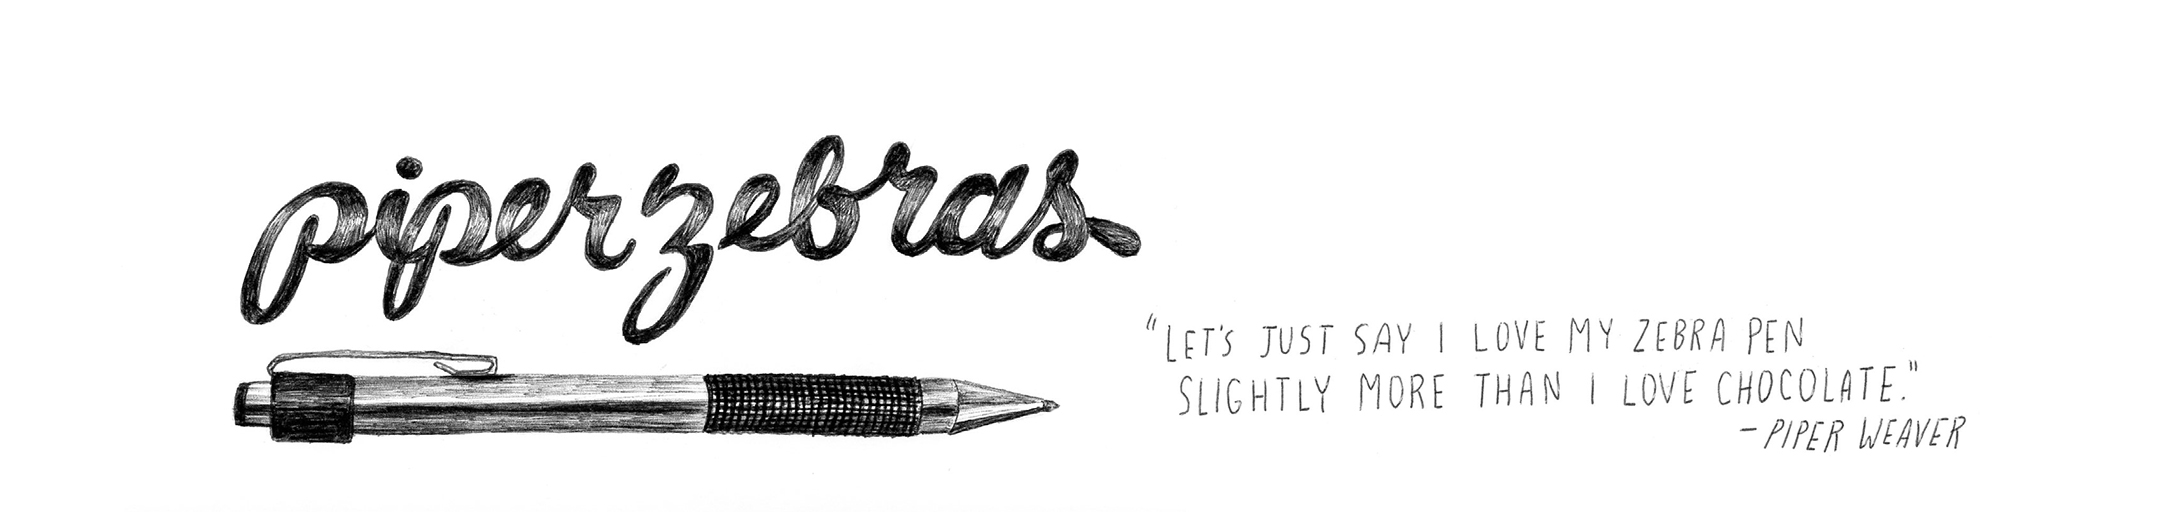 piperzebras
"LET'S JUST SAY I LOVE MY ZEBRA PEN
SLIGHTLY MORE THAN I LOVE CHOCOLATE."
- PIPER WEAVER